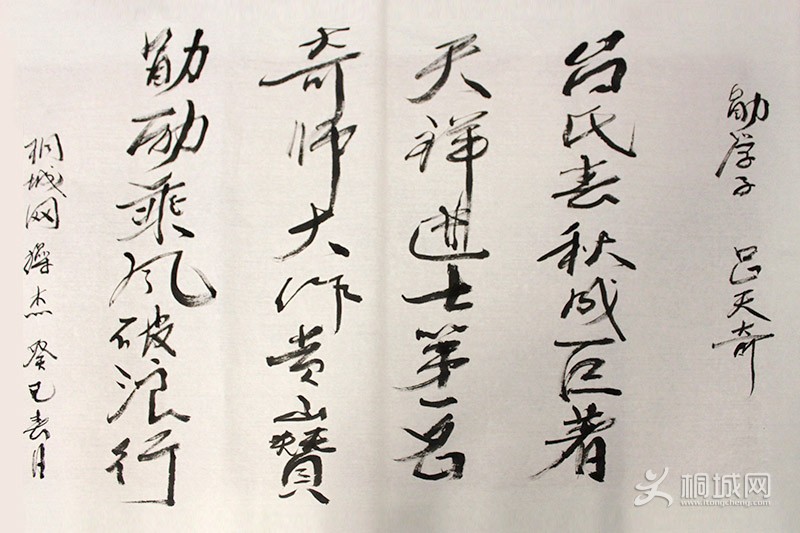 勖学子 吕天奇
吕氏春秋成巨著
天祥进士第一名
奇师大作黄山賛
勖励乘风破浪行
桐城网 杰 癸巳春月
桐城网
www.itongcheng.com